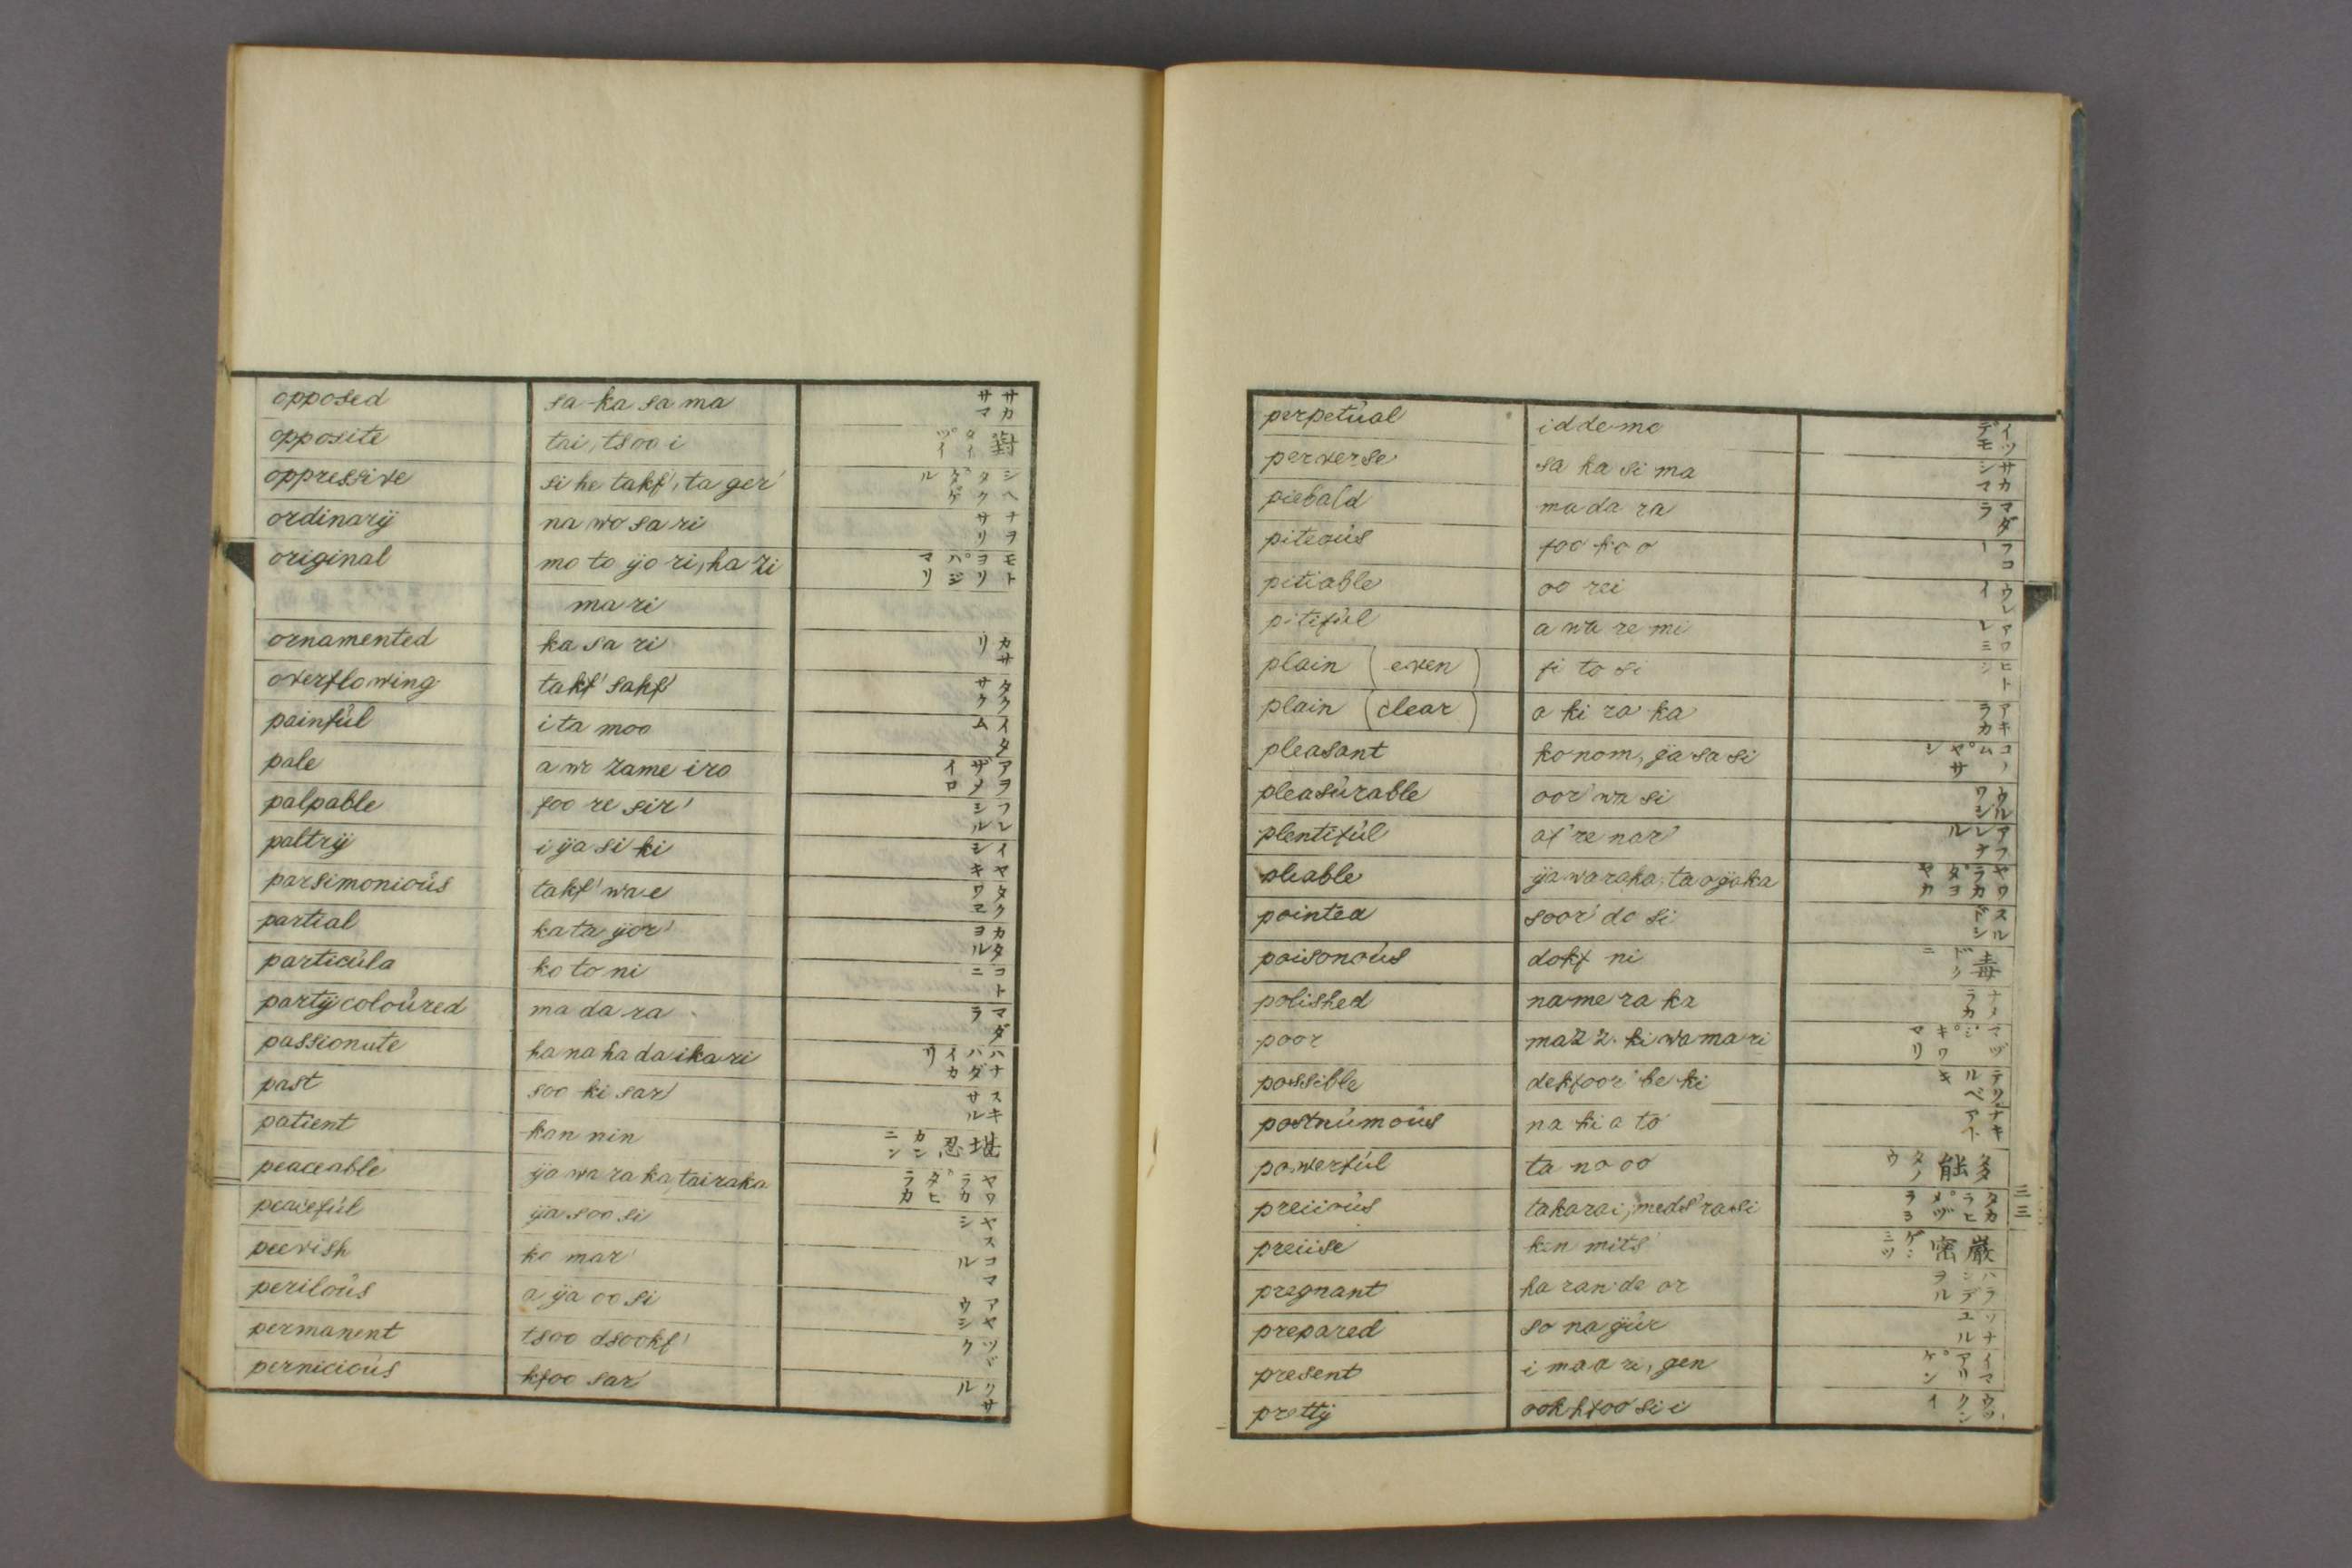 opposed sa-ka sa ma サカサマ
opposite tai, tsoo i 對タイツイ
oppressive si he takf', ta ger' シヘタクダゲル
ordinarÿ na wo sa ri ナヲサリ
original mo to ÿo ri, ha zi モトヨリハジマリ
ma ri
ornamented ka sa ri カサリ
overflowing takf' sakf' タクサク
painfúl i ta moo イタム
pale a wo zame iro アヲザメイロ
palpable foo re sir' フレシル
paltrÿ i ÿa si ki イヤシキ
parsimonioús takf' wa e タクワエ
partial ka ta ÿor' カタヨル
particúla ko to ni コトニ
partÿcoloúred ma da ra マダラ
passionate ha na ha da ikari ハナハダイカリ
past soo ki sar' スキサル
patient kan nin 堪忍カンニン
peaceable ÿa wa ra ka, tairaka ヤワラカダヒラカ
peacefúl ÿa soo si ヤスシ
peevish ko mar' コマル
periloús a ÿa oo si アヤウシ
permanent tsoo dsookf' ツヾク
pernicioús kfoo sar' クサル
perpetúal id de mo イツデモ
perverse sa ka si ma サカシマ
piebald ma da ra マダラ
piteoús foo ko o フコー
pitiable oo rei ウレイ
pitifúl a wa re mi アワレミ
plain (even) fi to si ヒトシ
plain (clear) a ki ra ka アキラカ
pleasant ko nom, ÿa sa si コノムヤサシ
pleasúrable oor' wa si ウルワシ
plentifúl af' re nar' アフレナル
pliable ÿa wa raka, ta o ÿaka ヤワラカダヨヤカ
pointed soor' do si スルドシ
poisonoús dokf ni 毒ドクニ
polished na me ra ka ナメラカ
poor mazz. ki wa ma ri マヅジキワマリ
possible dekfoor' be ki デクルベキ
posthúmoús na ki a to ナキアト
powerfúl ta no oo 多能タノウ
preiioús takarai, meds' ra si タカラヒメヅラヨ
preiise kin mits' 嚴密ゲンミツ
pregnant ha ran de or ハランデヲル
prepared so na ÿúr ソナユル
present i ma a ri, gen イマアリゲン
prettÿ ook kfoo si i ウツクシイ
三三